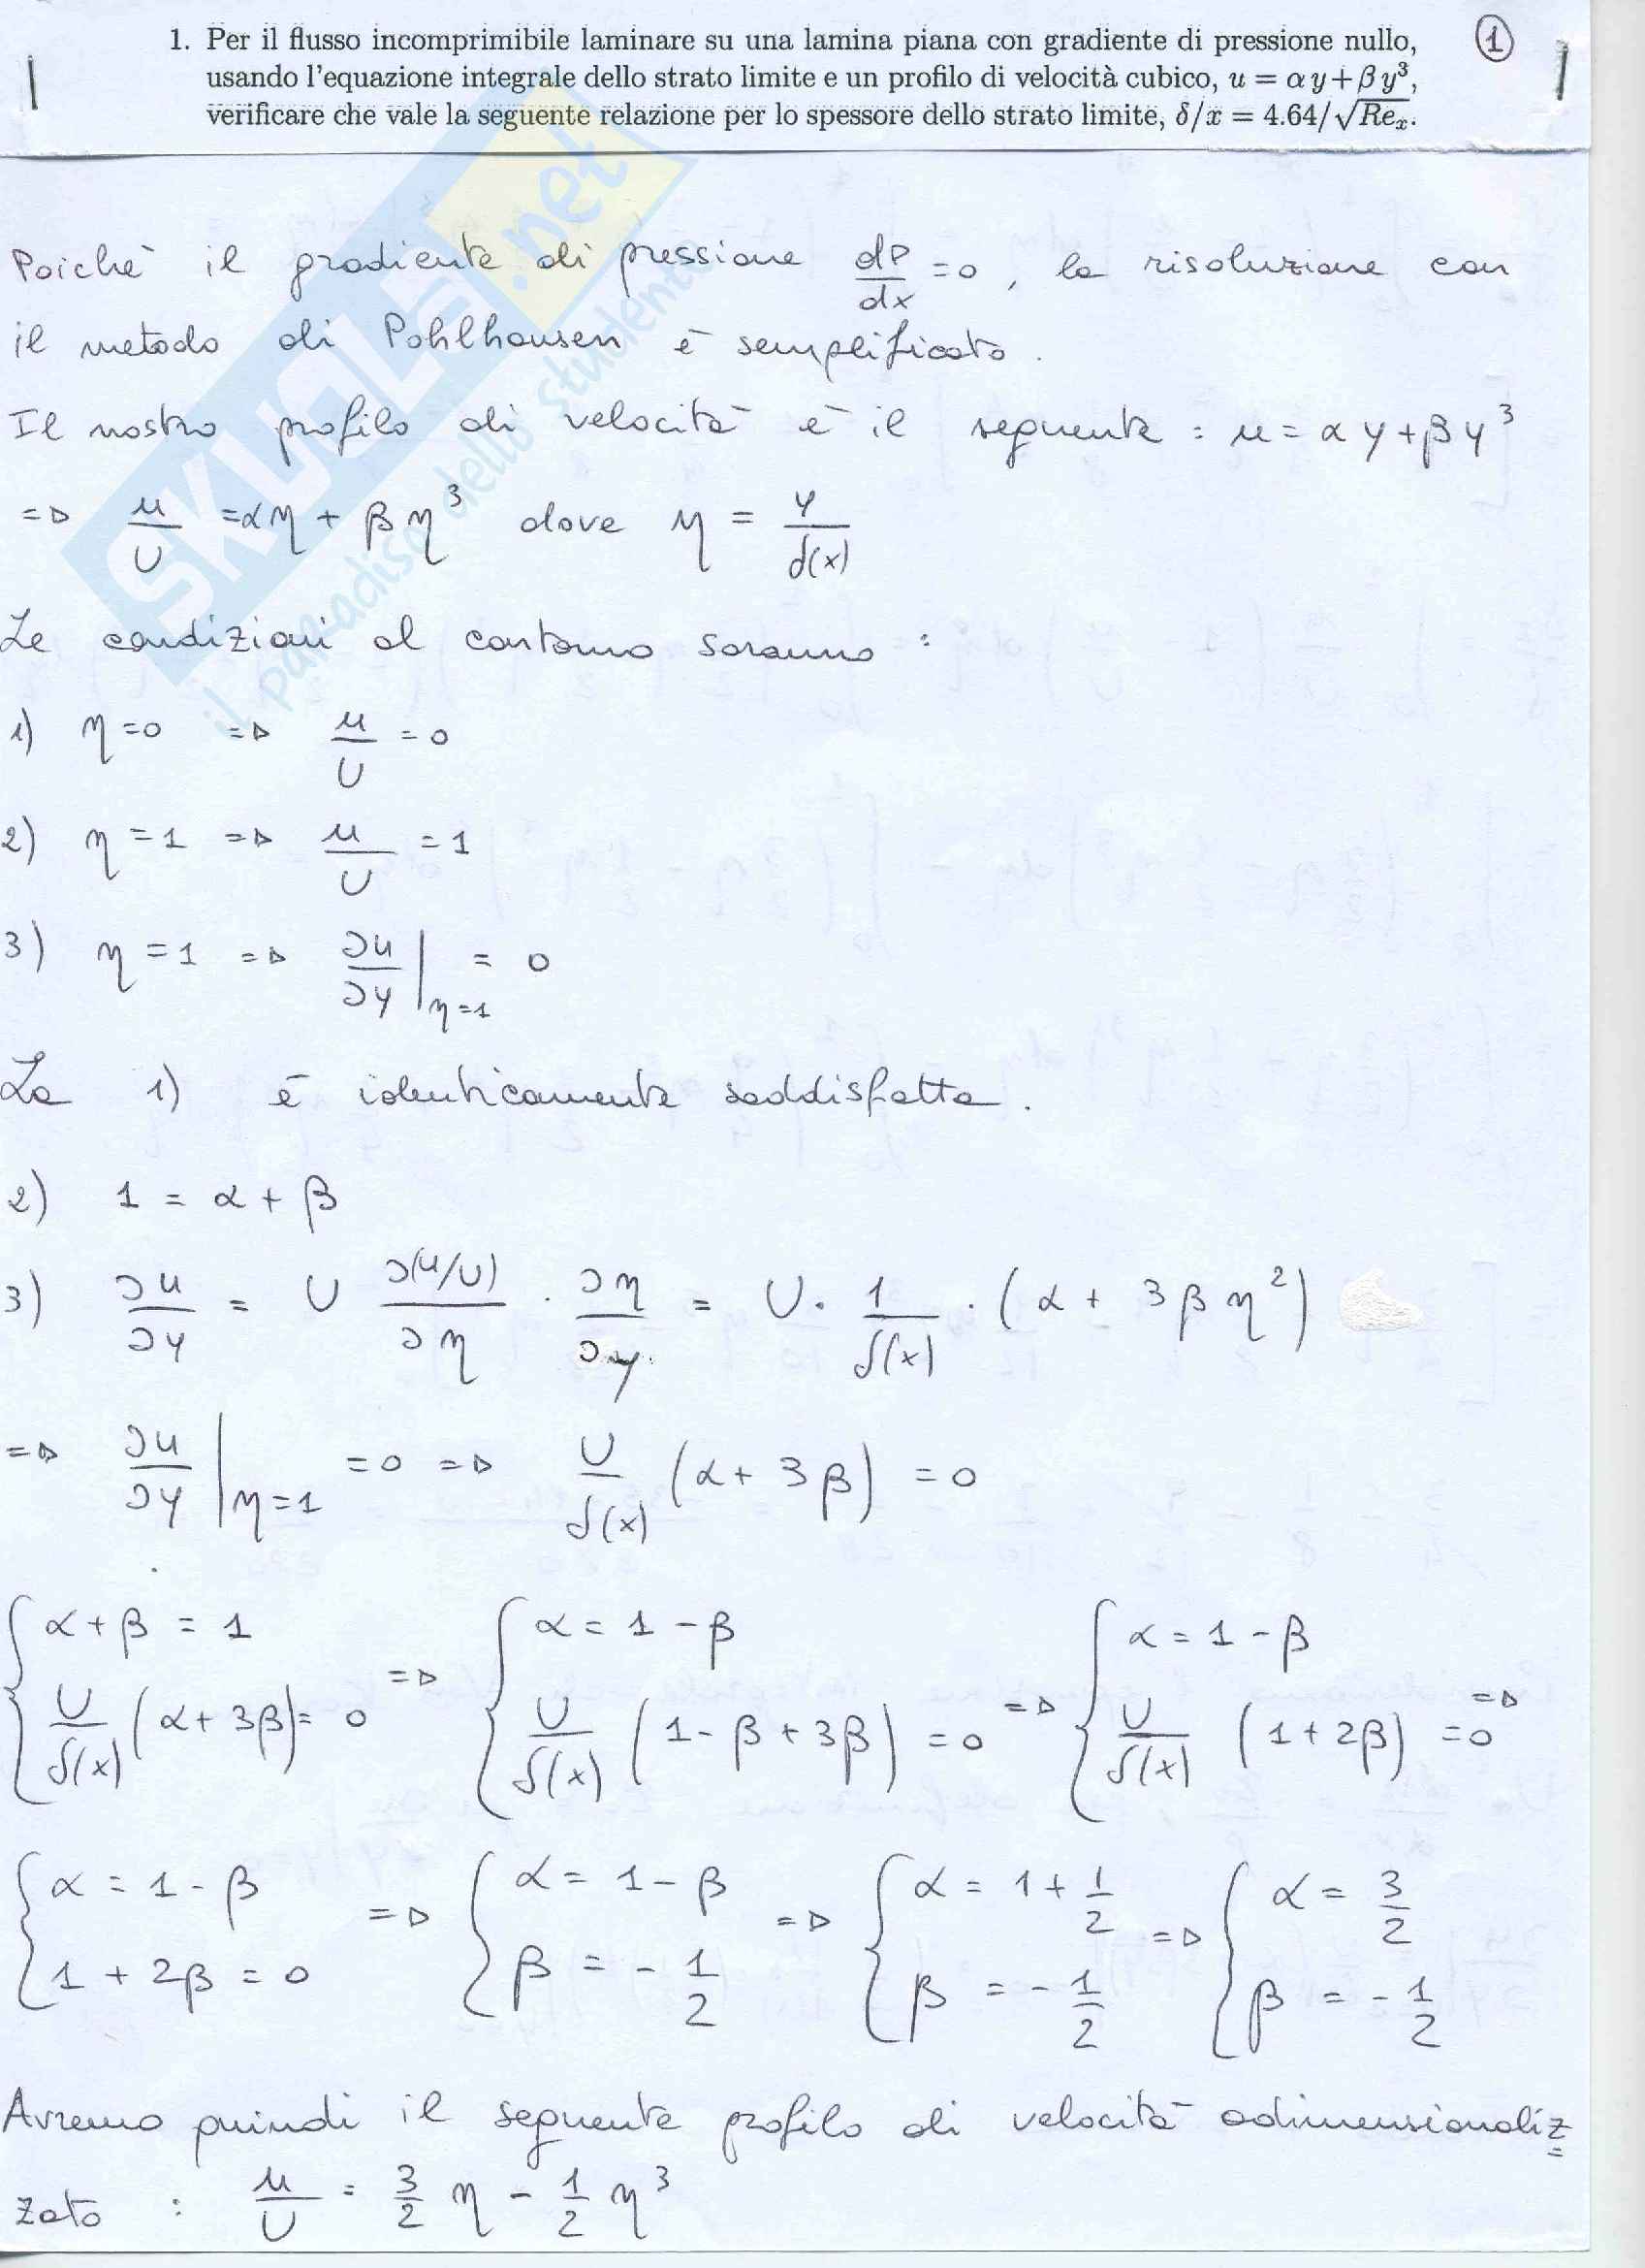 1. Per il flusso incomprimibile laminare su una lamina piana con gradiente di pressione nullo,
usando l'equazione integrale dello strato limite e un profilo di velocità cubico, u = αy+βy³,
verificare che vale la seguente relazione per lo spessore dello strato limite, δ/x = 4.64/√Reₓ.
①
SKUOLA.net
il paradiso dello studente
Poichè il gradiente di pressione dP/dx =0, la risoluzione con
il metodo di Pohlhausen è semplificato.
Il nostro profilo di velocità è il seguente : u = αy+βy³
=> u/U =αη + βη³ dove η = y/δ(x)
Le condizioni al contorno saranno :
1) η=0 => u/U =0
2) η=1 => u/U =1
3) η=1 => ∂u/∂y |η=1 = 0
La 1) è identicamente soddisfatta.
2) 1 = α+β
3) ∂u/∂y = U ∂(u/U)/∂η · ∂η/∂y = U · 1/δ(x) · (α + 3βη²)
=> ∂u/∂y |η=1 =0 => U/δ(x) (α+3β) =0
{α+β = 1 => {α = 1-β => {α = 1-β
U/δ(x) (α+3β)= 0 U/δ(x) (1-β+3β) =0 U/δ(x) (1+2β) =0 =>
{α = 1-β => {α = 1-β => {α = 1+1/2 => {α = 3/2
1+2β = 0 β = -1/2 β = -1/2 β = -1/2
Avremo quindi il seguente profilo di velocità adimensionaliz=
zato : u/U = 3/2 η - 1/2 η³